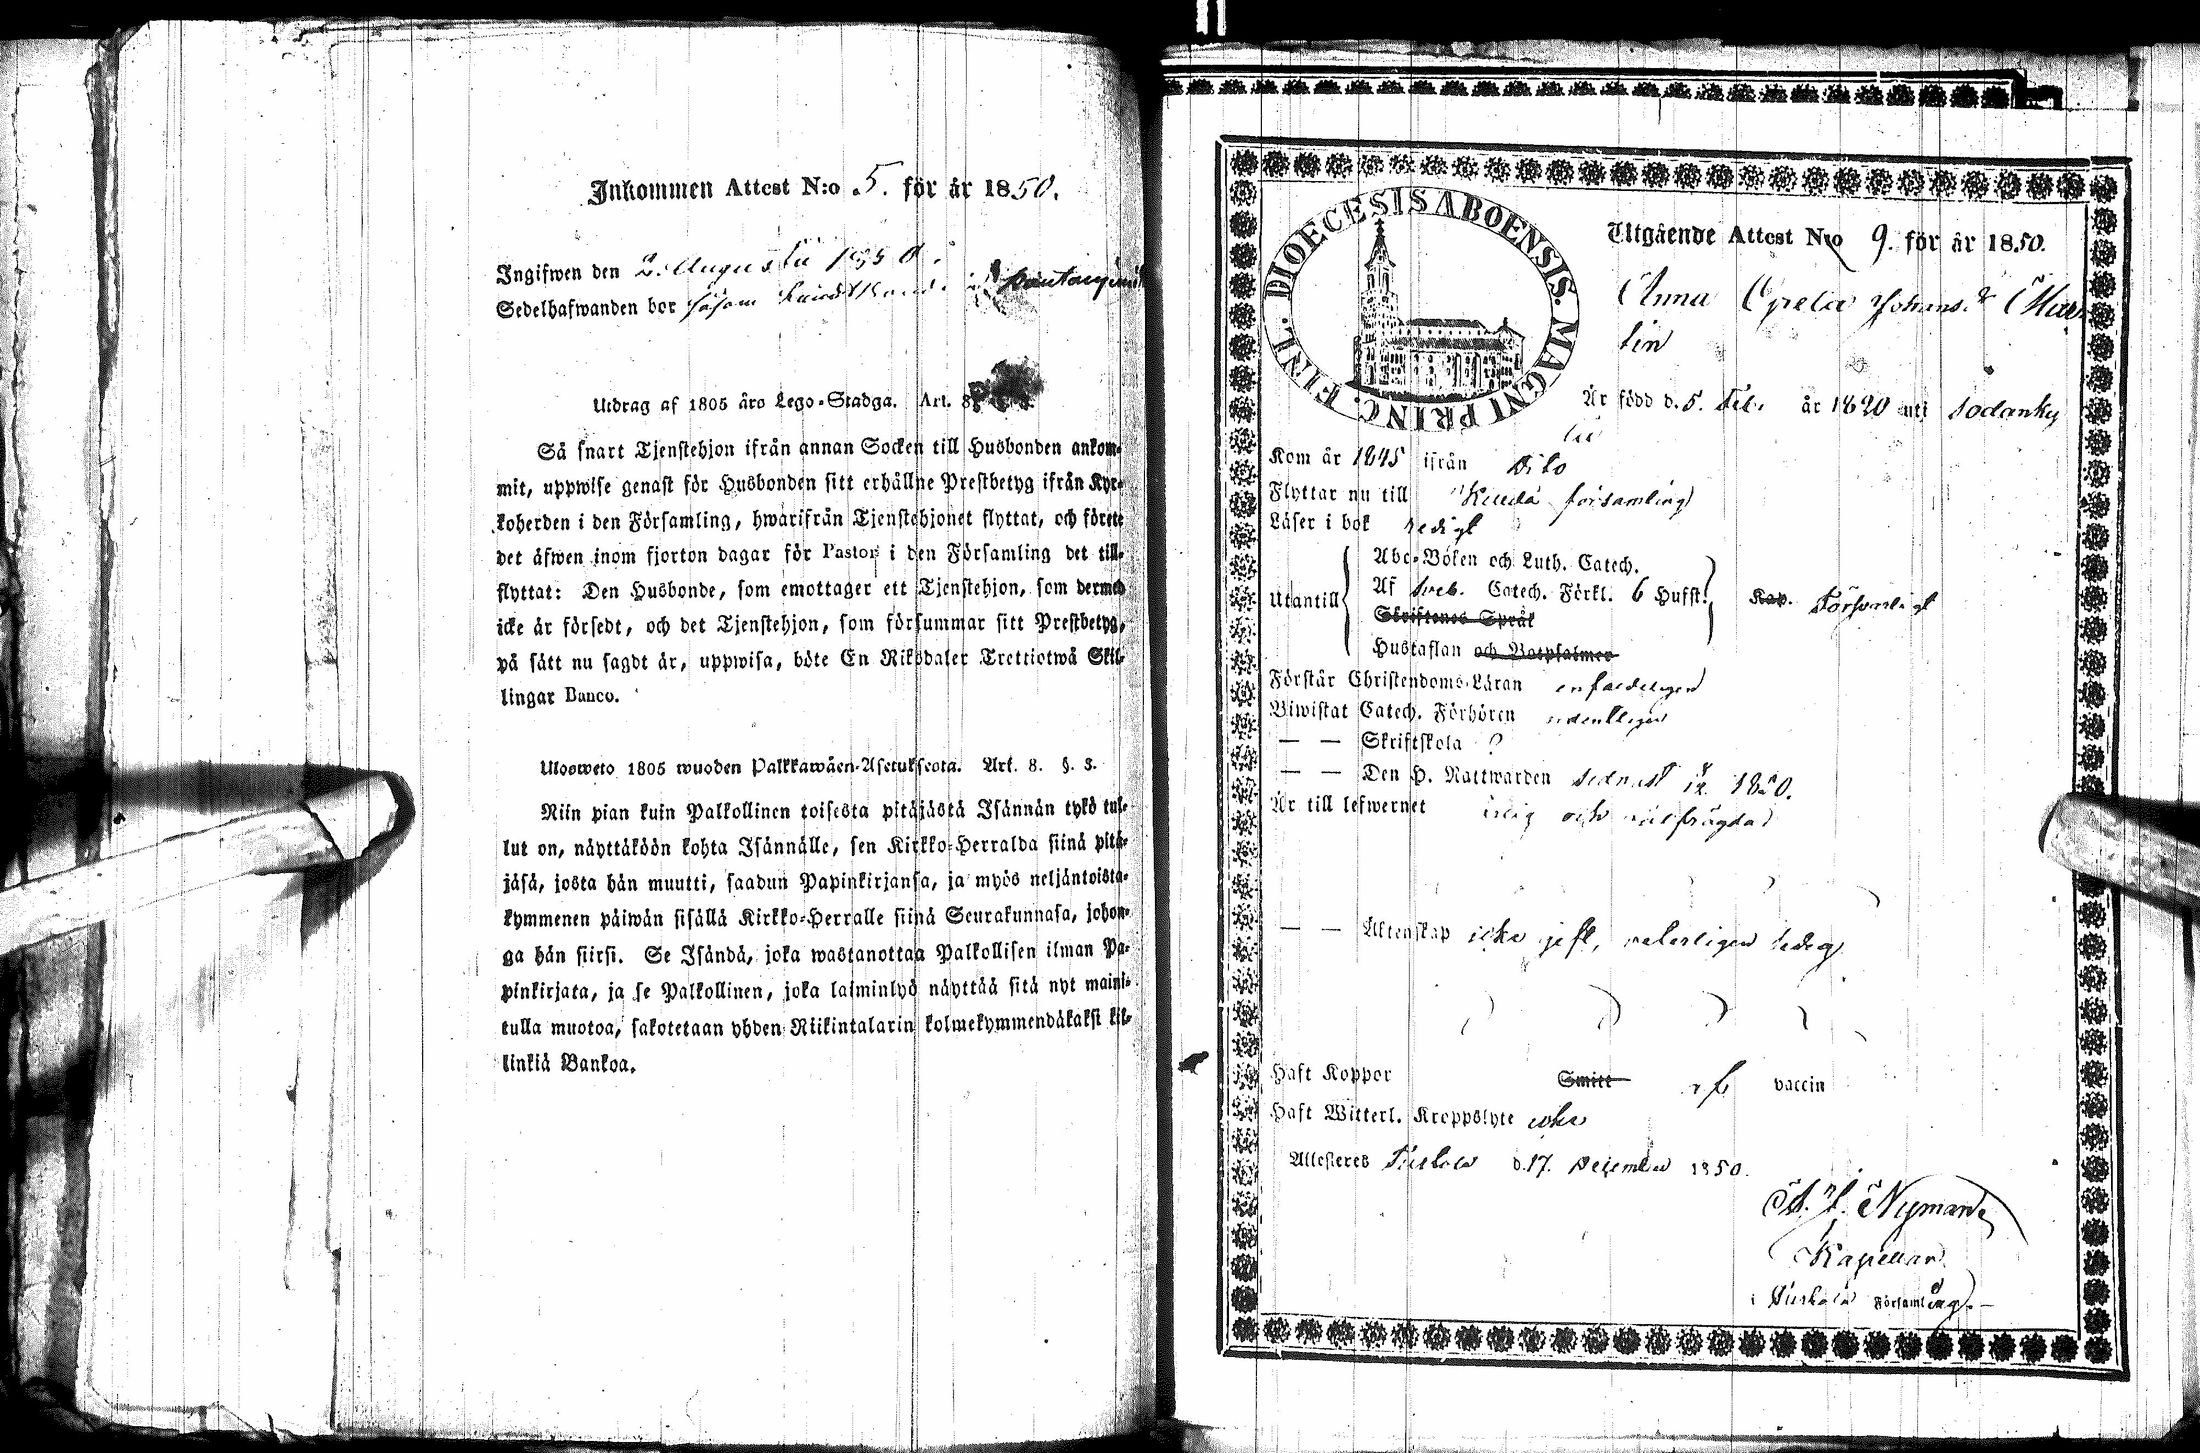 Inkommen Attest N:o 5. för år 1850.
Ingifwen den 2. Augusti 1850.
Sedelhafwanden bor såsom
Utdrag af 1805 åro Lego-Stadga. Art. 8.
Så snart Tjenstehjon ifrån annan Socken till Husbonden ankom-
mit, uppwise genast för Husbonden sitt erhållne Prestbetyg ifrån Kyr-
koherden i den Församling, hwarifrån Tjenstehjonet flyttat, och förete
det äfwen inom fjorton dagar för Pastor i den Församling det till-
flyttat: Den Husbonde, som emottager ett Tjenstehjon, som dermed
icke är försedt, och det Tjenstehjon, som försummar sitt Prestbetyg,
på sätt nu sagdt är, uppwisa, böte En Riksdaler Trettiotwå Skil-
lingar Banco.
Ulosweto 1805 wuoden Palkkawäen-Asetuksesta. Art. 8. §. 3.
Niin pian kuin Palkollinen toisesta pitäjästä Isännän tykö tul-
lut on, näyttäköön kohta Isännälle, sen Kirkko-Herralda siinä pitä-
jäsä, josta hän muutti, saadun Papinkirjansa, ja myös neljäntoista-
kymmenen päiwän sisällä Kirkko-Herralle siinä Seurakunnasa, johon-
ga hän siirsi. Se Isändä, joka wastanottaa Palkollisen ilman Pa-
pinkirjata, ja se Palkollinen, joka laiminlyö näyttää sitä nyt maini-
tulla muotoa, sakotetaan yhden Riikintalarin kolmekymmendäkaksi kil-
linkiä Bankoa.
DIOECESIS ABOENSIS. MAGNI PRINC. FINL.
Utgående Attest N:o 9. för år 1850.
Anna Greta Johans.d Mar
tin
Är född d. 5. Feb. år 1820 uti Sodanky
lä
Kom år 1845 ifrån Dito
Flyttar nu till församling
Läser i bok redigt
Utantill
Abc-Boken och Luth. Catech.
Af Sveb. Catech. Förkl. 6 Hufst.
Skriftenes Språk
Hustaflan och Botpsalmer
Kap. Förswarligt
Förstår Christendoms-Läran enfaldeligen
Biwistat Catech. Förhören ordentligen
— — Skriftskola ?
— — Den H. Nattwarden sednast 1850.
Är till lefwernet ärlig och wälfrägdad
— — Äktenskap icke gift, weterligen ledig
Haft Koppor Smitt vaccin
Haft Witterl. Kroppslyte icke
Attesteres d. 17. December 1850.
Nyman
Kapellan
i Församling.